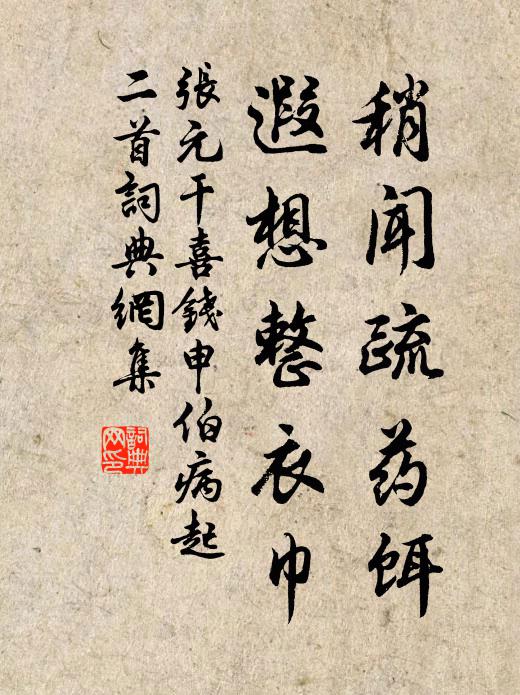 稍闻疏药饵
遐想整衣巾
張元干喜錢申伯病起
二首詞典網集
詞典
网印